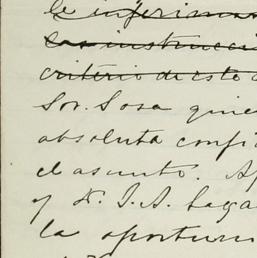 le inferimos
las instrucci
criterio de este
Sor. Sosa quie
absoluta confi
el asunto. Ap
y D. J. A. Laga
la oportuni